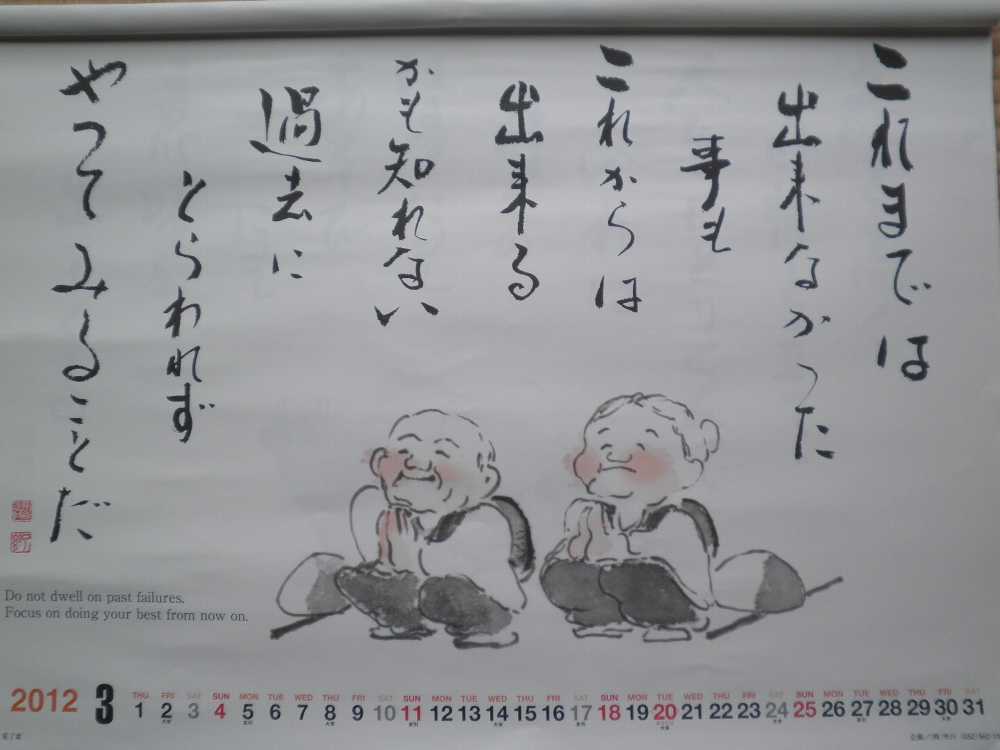 これまでは
出来なかった
事も
これからは
出来る
かも知れない
過去に
とらわれず
やってみることだ
Do not dwell on past failures.
Focus on doing your best from now on.
2012 3
THU FRI SAT SUN MON TUE WED THU FRI SAT SUN MON TUE WED THU FRI SAT SUN MON TUE WED THU FRI SAT SUN MON TUE WED THU FRI SAT
1 2 3 4 5 6 7 8 9 10 11 12 13 14 15 16 17 18 19 20 21 22 23 24 25 26 27 28 29 30 31